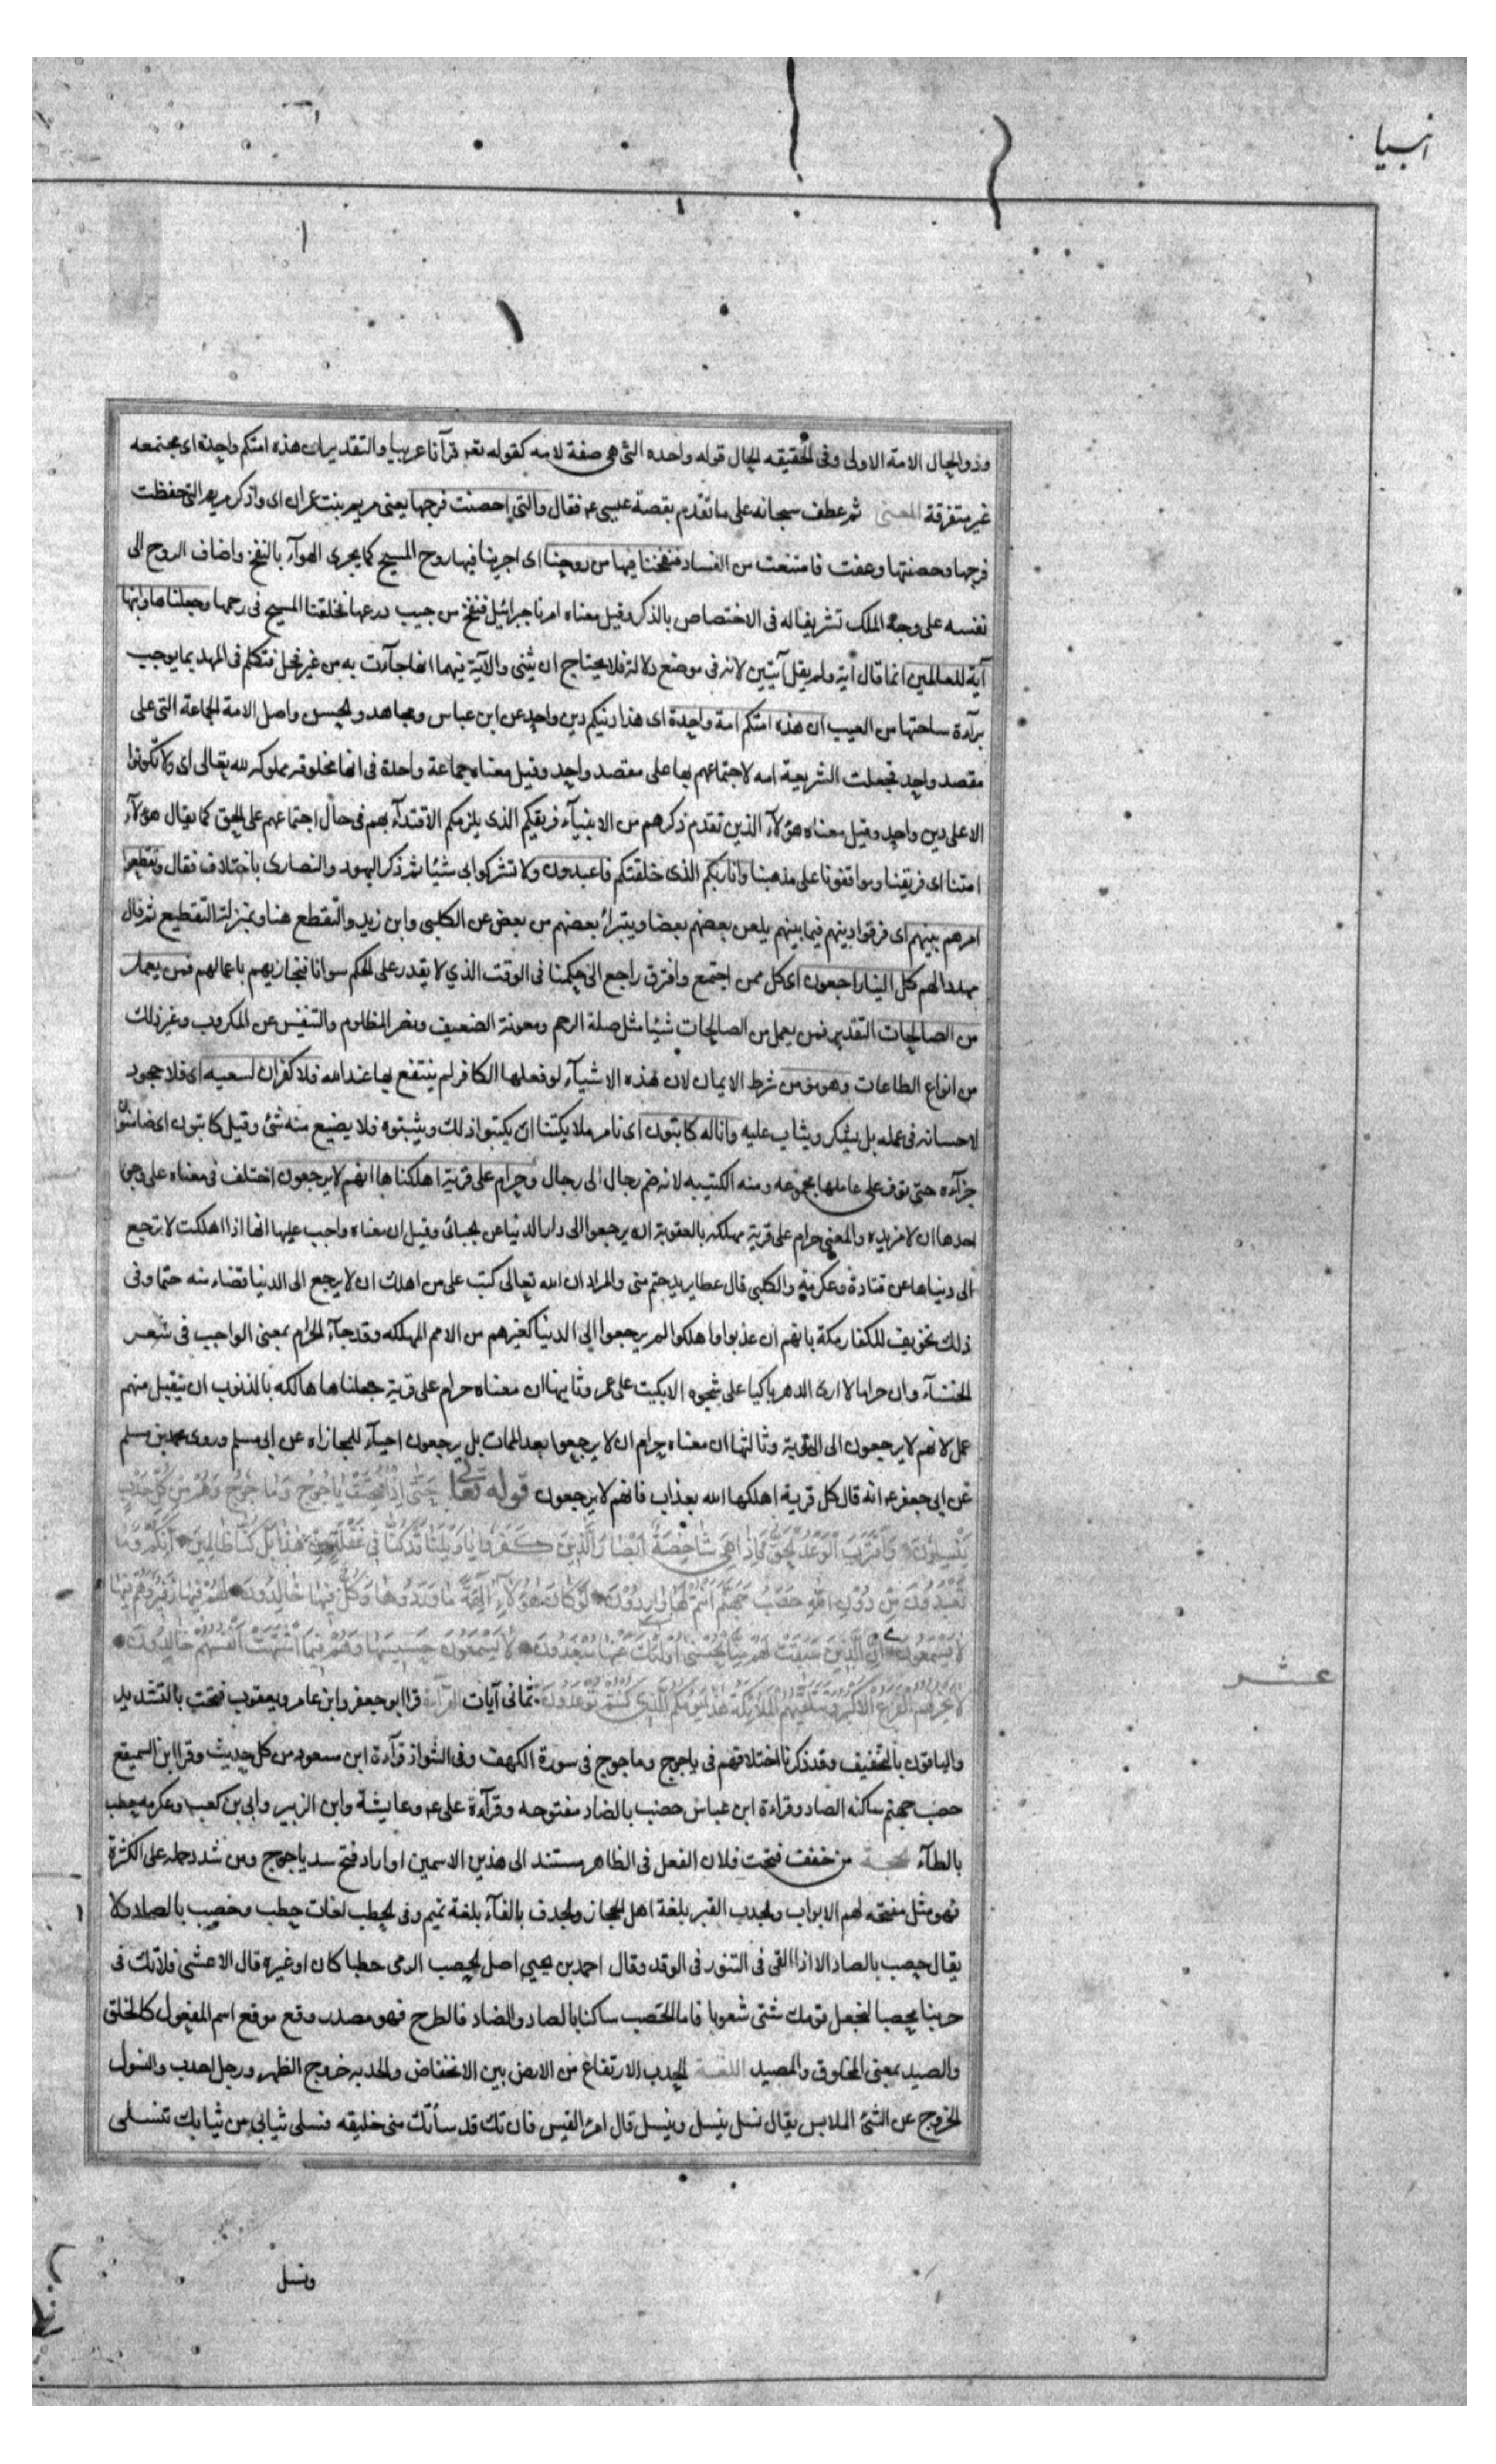 انبيا
وذو الحال الامة الاولى وفى الحقيقه الحال قوله واحده التى هى صفة لامه كقوله تعر قرآنا عربيا والتقدير ان هذه امتكم واحدة اى مجتمعه
غير متفرقة المعنى ثم عطف سبحانه على ما تقدم بقصة عيسى عم فقال والتى احصنت فرجها يعنى مريم بنت عمران اى واذكر مريم التى حفظت
فرجها وحصنتها وعفت فامتنعت من الفساد فنفخنا فيها من روحنا اى اجرينا فيها روح المسيح كما يجرى الهوآء بالنفخ واضاف الروح الى
نفسه على وجه الملك تشريفا له فى الاختصاص بالذكر وقيل معناه امرنا جبرائيل فنفخ من جيب درعها فخلقنا المسيح فى رحمها وجعلناها وابنها
آية للعالمين انما قال آية ولم يقل آيتين لانه فى موضع دلالة فلا يحتاج ان يثنى والآية فيهما انها جآءت به من غير فحل فتكلم فى المهد بما يوجب
برآءة ساحتها من العيب ان هذه امتكم امة واحدة اى هذا دينكم دين واحد عن ابن عباس ومجاهد والحسن واصل الامة الجماعة التى على
مقصد واحد فجعلت الشريعة امه لاجتماعهم بها على مقصد واحد وقيل معناه جماعة واحدة فى انها مخلوقه مملوكه لله تعالى اى ولا تكونوا
الا على دين واحد وقيل معناه هؤلآء الذين تقدم ذكرهم من الانبيآء فريقكم الذى يلزمكم الاقتدآء بهم فى حال اجتماعهم على الحق كما يقال هؤلآء
امتنا اى فريقنا وموافقونا على مذهبنا وانا ربكم الذى خلقتكم فاعبدون ولا تشركوا بى شيئا ثم ذكر اليهود والنصارى باختلاف فقال وتقطعوا
امرهم بينهم اى فرقوا دينهم فيما بينهم يلعن بعضهم بعضا ويتبرأ بعضهم من بعض عن الكلبى وابن زيد والتقطع هنا بمنزلة التقطيع ثم قال
مهددا لهم كل الينا راجعون اى كل ممن اجتمع وافترق راجع الى حكمنا فى الوقت الذي لا يقدر على الحكم سوانا فنجازيهم باعمالهم فمن يعمل
من الصالحات التقدير فمن يعمل من الصالحات شيئا مثل صلة الرحم ومعونة الضعيف ونصر المظلوم والتنفيس عن المكروب وغير ذلك
من انواع الطاعات وهو مؤمن شرط الايمان لان هذه الاشيآء لو فعلها الكافر لم ينتفع بها عند الله فلا كفران لسعيه اى فلا جحود
لاحسانه فى عمله بل يشكر ويثاب عليه وانا له كاتبون اى نامر ملائكتنا ان يكتبوا ذلك ويثبتوه فلا يضيع منه شئ وقيل كاتبون اى ضامنون
جزآءه حتى نوف على عاملها مجموعه ومنه الكتيبه لانه ضم رجال الى رجال وحرام على قرية اهلكناها انهم لا يرجعون اختلف فى معناه على وجوه
احدها ان لا مزيده والمعنى حرام على قرية مهلكه بالعقوبة ان يرجعوا الى دار الدنيا عن الجبائى وقيل ان معناه واجب عليها انها اذا اهلكت لا ترجع
الى دنياها عن قتادة وعكرمة والكلبى قال عطا يريد حتم منى والمراد ان الله تعالى كتب على من اهلك ان لا يرجع الى الدنيا قضاء منه حتما وفى
ذلك تخويف للكفار مكة بانهم ان عذبوا واهلكوا لم يرجعوا الى الدنيا كغيرهم من الامم المهلكه وقد جآء الحرام بمعنى الواجب فى شعر
الخنسآء وان حراما لا ارى الدهر باكيا على شجوه الا بكيت على عمر وثانيها ان معناه حرام على قرية جعلناها هالكه بالذنوب ان يتقبل منهم
عمل لانهم لا يرجعون الى التوبة وثالثها ان معناه حرام ان لا يرجعوا بعد الممات بل يرجعون احيآء للمجازاه عن ابى مسلم وروى محمد بن مسلم
عن ابى جعفر عم انه قال كل قرية اهلكها الله بعذاب فانهم لا يرجعون قوله تعالى حَتّى اِذا فُتِحَتْ يَاْجُوجُ وَمَاْجُوجُ وَهُمْ مِنْ كُلِّ حَدَبٍ
يَنْسِلُونَ وَاقْتَرَبَ الْوَعْدُ الْحَقُّ فَاِذا هِيَ شاخِصَةٌ اَبْصارُ الَّذِينَ كَفَرُوا ياوَيْلَنا قَدْ كُنّا فِي غَفْلَةٍ مِنْ هذا بَلْ كُنّا ظالِمِينَ اِنَّكُمْ وَما
تَعْبُدُونَ مِنْ دُونِ اللهِ حَصَبُ جَهَنَّمَ اَنْتُمْ لَها وارِدُونَ لَوْ كانَ هؤُلآءِ آلِهَةً ما وَرَدُوها وَكُلٌّ فِيها خالِدُونَ لَهُمْ فِيها زَفِيرٌ وَهُمْ فِيها
لا يَسْمَعُونَ اِنَّ الَّذِينَ سَبَقَتْ لَهُمْ مِنَّا الْحُسْنى اُولئِكَ عَنْها مُبْعَدُونَ لا يَسْمَعُونَ حَسِيسَها وَهُمْ فِيمَا اشْتَهَتْ اَنْفُسُهُمْ خالِدُونَ
عشر
لا يَحْزُنُهُمُ الْفَزَعُ الْاَكْبَرُ وَتَتَلَقّيهُمُ الْمَلائِكَةُ هذا يَوْمُكُمُ الَّذِي كُنْتُمْ تُوعَدُونَ ثمانى آيات القرآءة قرا ابو جعفر وابن عامر ويعقوب فتحت بالتشديد
والباقون بالتخفيف وقد ذكرنا اختلافهم فى ياجوج وماجوج فى سورة الكهف وفى الشواذ قرآءة ابن مسعود من كل جديث وقرا ابن السميقع
حصب جهنم ساكنه الصاد وقراءة ابن عباس حضب بالضاد مفتوحه وقرآءة على عم وعايشة وابن الزبير وابى بن كعب وعكرمه حطب
بالطآء الحجة من خفف فتحت فلان الفعل فى الظاهر مستند الى هذين الاسمين او اراد فتح سد ياجوج ومن شدد حمله على الكثرة
فهو مثل مفتحه لهم الابواب والجدث القبر بلغة اهل الحجاز والجدف بالفآء بلغة تميم وفى الحطب لغات حطب وحصب بالصاد ولا
يقال حصب بالصاد الا اذا القى فى التنور فى الوقد وقال احمد بن يحيى اصل الحصب الرمى حطبا كان او غيره قال الاعشى فلا تك فى
حربنا محصبا لتجعل قومك شتى شعوبا فاما الحصب ساكنا بالصاد والضاد فالطرح فهو مصدر وقع موقع اسم المفعول كالخلق
والصيد بمعنى المخلوق والمصيد اللغة الحدب الارتفاع من الارض بين الانخفاض والحدبه خروج الظهر ورجل احدب والنسول
الخروج عن الشئ الملابس يقال نسل ينسل وينسل قال امرؤ القيس فان تك قد سأتك منى خليقه فسلى ثيابى من ثيابك تنسلى
ونسل